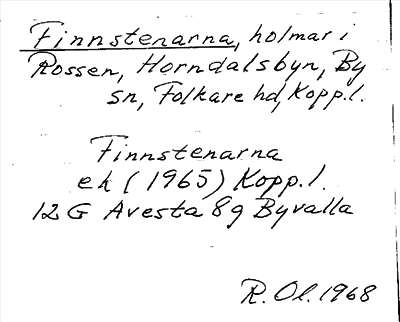 Finnstenarna, holmar i
Rossen, Horndalsbyn, By
sn, Folkare hd, Kopp.l.
Finnstenarna
ek (1965) Kopp.l.
12 G Avesta 8g Byvalla
R. Ol. 1968